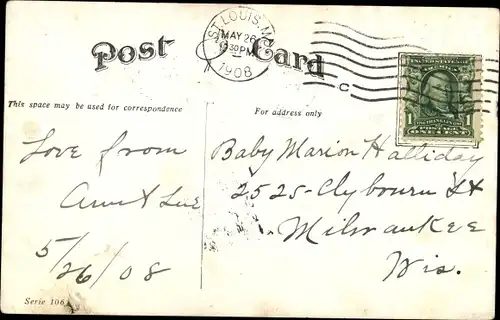 Post Card
ST. LOUIS, MO.
MAY 26
30PM
1908
C
This space may be used for correspondence
For address only
1
1
POSTAGE
ONE CENT
Love from
Aunt Sue
5/26/08
Baby Marion Halliday
2525 - Clybourn St
Milwaukee
Wis.
Serie 106